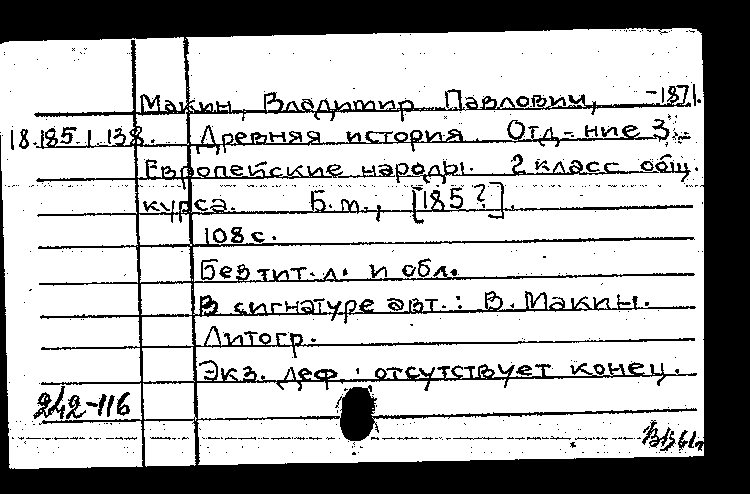 Макин, Владимир Павлович, -1871.
18.185.1.138. Древняя история. Отд-ние 3.-
Европейские народы. 2 класс общ.
курса. Б.м., [185?].
108 с.
Без тит.л. и обл.
В сигнатуре авт.: В. Макин.
Литогр.
Экз. деф.: отсутствует конец.
242-116